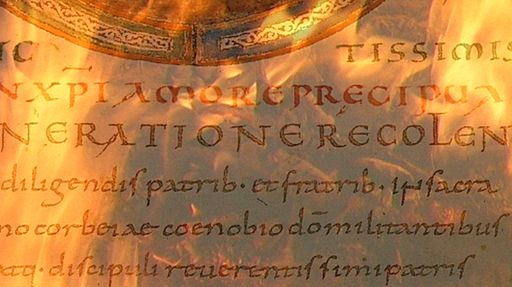 IC TISSIMIS
N XPI AMORE PRECIPUA
NERATIONE RECOLEN
diligendis patrib· et fratrib· in sacra
no corbeiae coenobio dō militantibus
atq· discipuli reverentissimi patris